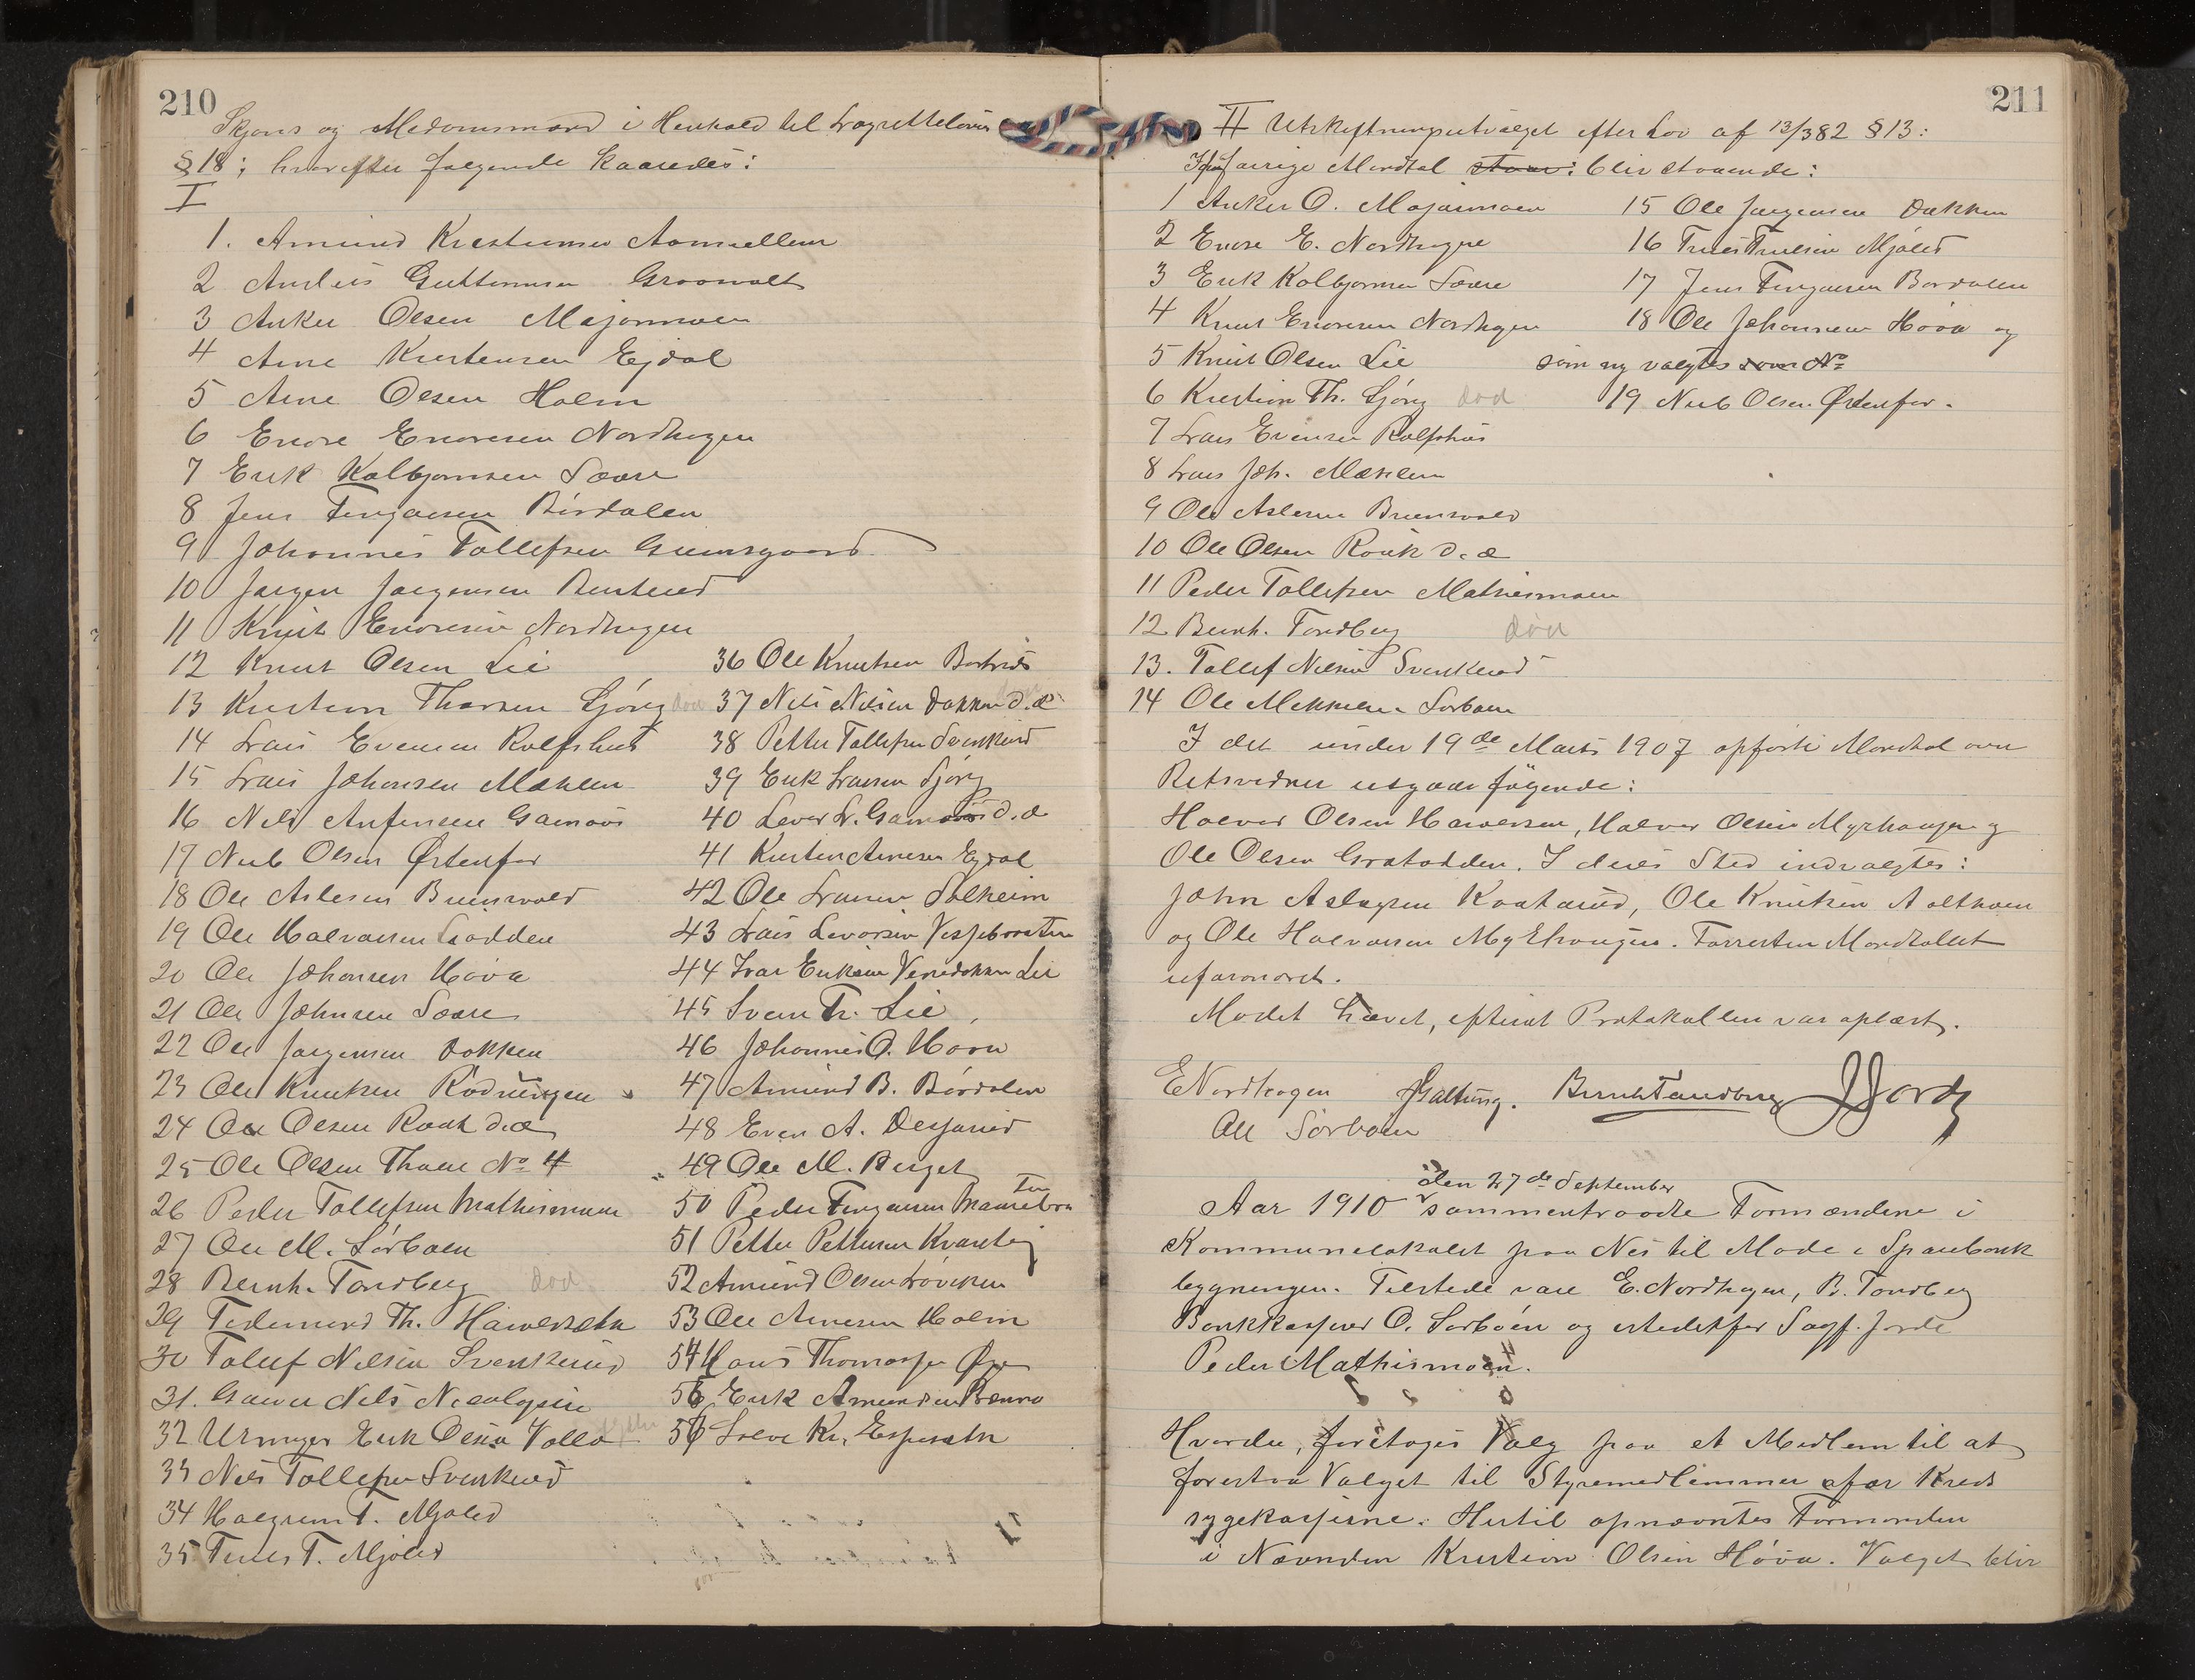 210
Skjøns og Medomsmænd i Henhold til Lagretteloven
§ 18; hvorefter følgende kaaredes:
I
1. Amund Kristiansen
2 Anders Guttormsen Graavolt
3 Anker Olsen Majormoen
4 Arne Kristensen Ejdal
5 Arne Olsen Holm
6 Enore Enoresen Nordhagen
7 Erik Kolbjørnsen Saare
8 Jens Fingarsen Børdalen
9 Johannes Tollefsen Gunsgaard
10 Jørgen Jørgensen
11 Knut Enoresen Nordhagen
12 Knut Olsen Lie
13 Kristian Thorsen Gjóng død
14 Lars Evensen Rolfshus
15 Lars Johansen Mæhlen
16 Nils Anfinsen Gamaas
17 Nub Olsen Østenfor
18 Ole Aslesen Bruenvold
19 Ole Halvorsen Lodden
20 Ole Johansen Hóva
21 Ole Johnsen Saare
22 Ole Jørgensen Dokken
23 Ole Knutsen Rodningen
24 Ole Olsen Roak d.æ
25 Ole Olsen Thoen No 4
26 Peder Tollefsen Mathismoen
27 Ole M. Sórboen
28 Bernh. Tandberg død
29 Tidemand Th. Haiversætn
30 Tollef Nilsen Svenkerud
31. Nils
32 Erik Olsen
33 Nils Tollefsen Svenkerud
34 Halgrim T. Mjøled
35 Truls T. Mjøled
36 Ole Knutsen
37 Nils Nilsen Dokken d.æ
38 Petter Tollefsen Svenkerud
39 Erik Larsen Gjóng
40 Lever L. Gamaas d.æ
41 Kristen Arnesen Ejdal
42 Ole Larsen Solheim
43 Lars Levorsen
44 Ivar Eriksen Lie
45 Svein Tr. Lie
46 Johannes O. Hovn
47 Amund B. Børdalen
48 Even A.
49 Ole M. Berget
50 Peder Fingarsen
51 Petter Pettersen
52 Amund Olsen
53 Ole Arnesen Holm
54 Hans Thomassen Øye
56 Erik Amundsen
56 Kr. Espesetn
211
II Utskiftningsutvalget efter Lov af 13/3 82 § 13:
forrige Mandtal staar: blir staaende:
1 Anker O. Majormoen
2 Enore E. Nordhagen
3 Erik Kolbjørnsen Saare
4 Knut Enoresen Nordhagen
5 Knut Olsen Lie
6 Kristian Th. Gjóng død
7 Lars Evensen Rolfshus
8 Lars Joh. Mæhlen
9 Ole Aslesen Bruenvold
10 Ole Olsen Roak d.æ
11 Peder Tollefsen Mathismoen
12 Bernh. Tandberg død
13. Tollef Nilsen Svenkerud
14 Ole Mikkelsen Sorboen
15 Ole Jørgensen Dokken
16 Truls Trulsen Mjøled
17 Jens Fingarsen Bordalen
18 Ole Johannesen Hóva og
som ny valgtes som No
19 Nub Olsen Østenfor.
I det under 19de Marts 1907 opførte Mandtal over
Retsvidner utgaar følgende:
Halvor Olsen, Halvor Olsen Myrhaugen og
Ole Olsen. I deres Sted indvalgtes:
John Aslagsen, Ole Knutsen
og Ole Halvorsen Myrhaugen. Forresten Mandtallet
uforandret.
Mødet hævet, efterat Protokollen var oplæst.
E Nordhagen Galtung. Bernh Tandberg J Jorde
Ole Sørboen
Aar 1910 den 27de September sammentraadte Formændene i
Kommunelokalet paa Nes til Møde i Sparebank
bygningen. Tilstede vare E. Nordhagen, B. Tandberg
Bankkasserer O. Sorboen og istedetfor Sagf. Jorde
Peder Mathismoen.
Hvorder, foretoges Valg paa et Medlem til at
forestaa Valget til Styremedlemmer for Kreds
sygekasserne. Hertil opnævntes Formanden
i Nævnden Kristian Olsen Hóva. Valget blir